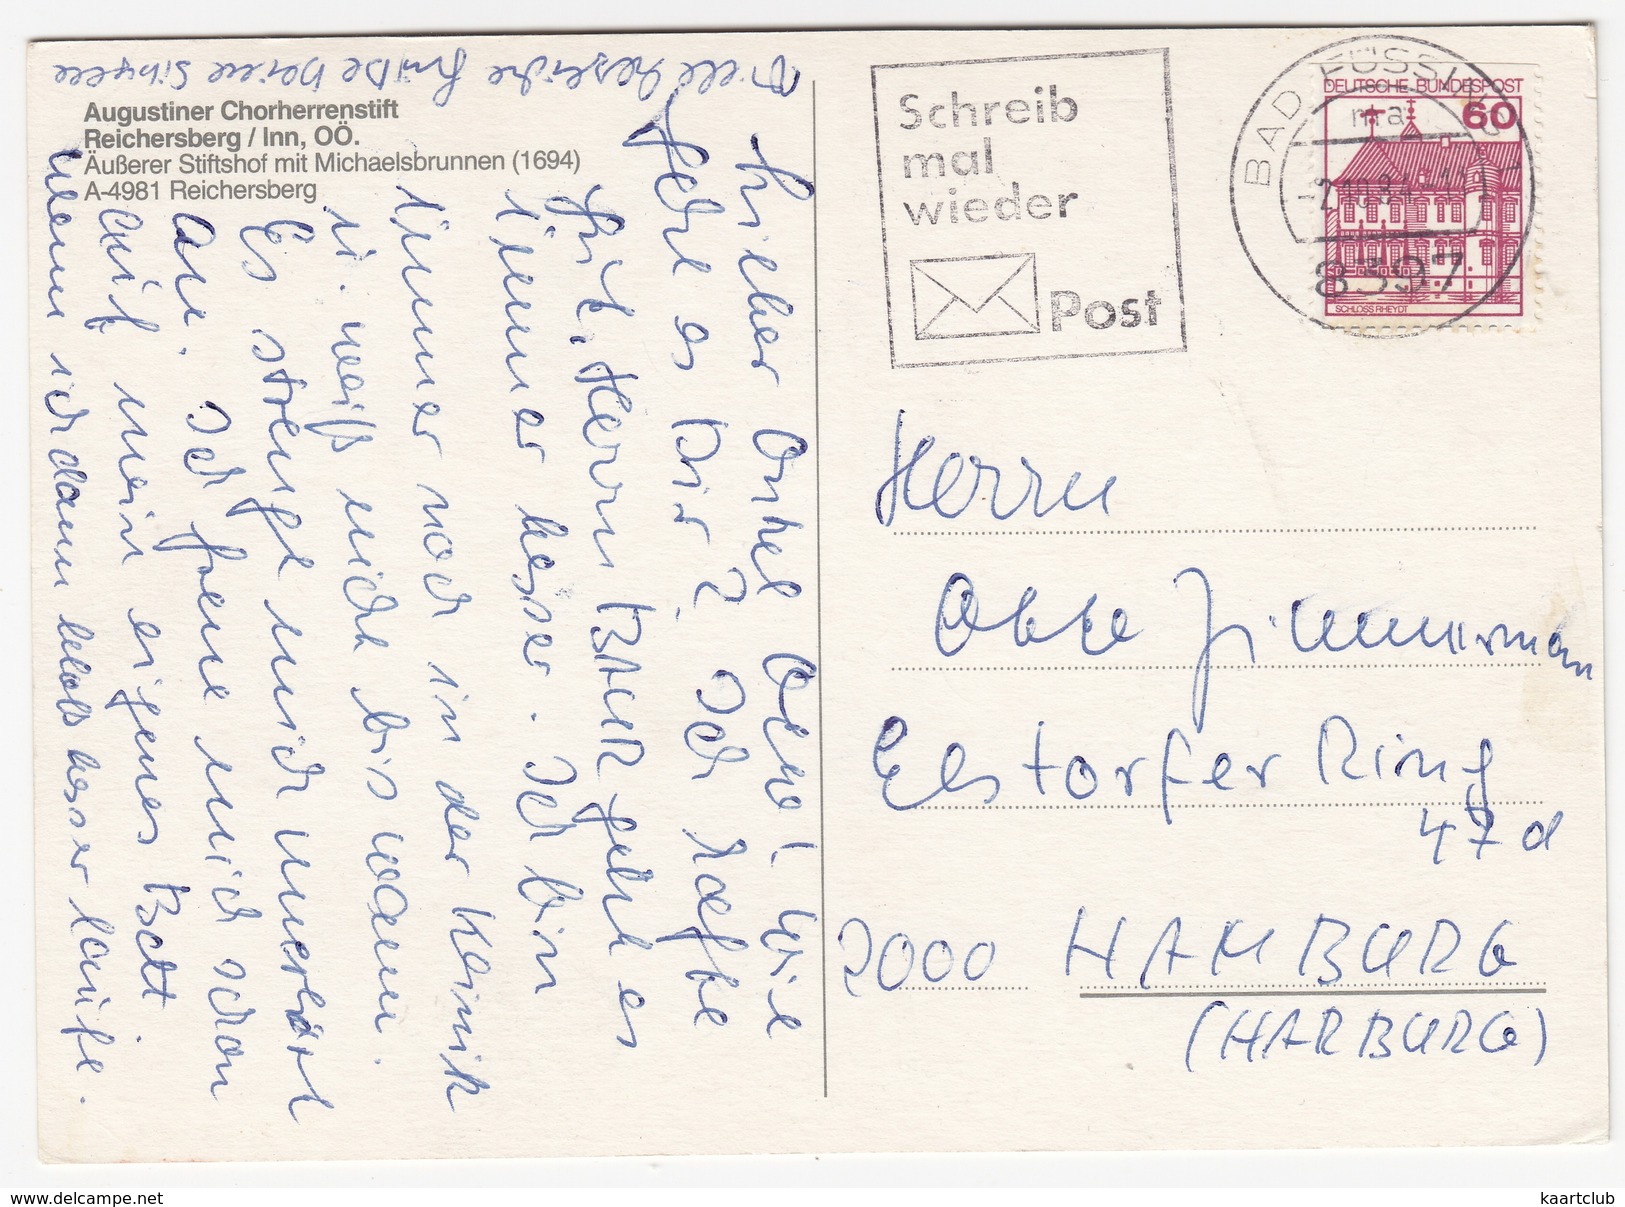 Augustiner Chorherrenstift
Reichersberg / Inn, OÖ.
Äußerer Stiftshof mit Michaelsbrunnen (1694)
A-4981 Reichersberg
Lieber Onkel Otto! Wie
geht es Dir? Ich hoffe
gut. Herrn BAER geht es
immer besser. Ich bin
immer noch in der Klinik
u. weiß nicht bis wann.
Es strengt mich unerhört
an. Ich freue mich schon
auf mein eigenes Bett.
Wenn ich dann bloß besser laufe.
Viele herzliche Grüße Deine Sibylle
Schreib
mal
wieder
Post
BAD FÜSSING
-2.10.84-
8397
DEUTSCHE BUNDESPOST
60
SCHLOSS RHEYDT
Herrn
Otto Zimmermann
Elestorfer Ring
47d
2000 HAMBURG
(HARBURG)
kaartclub
www.delcampe.net